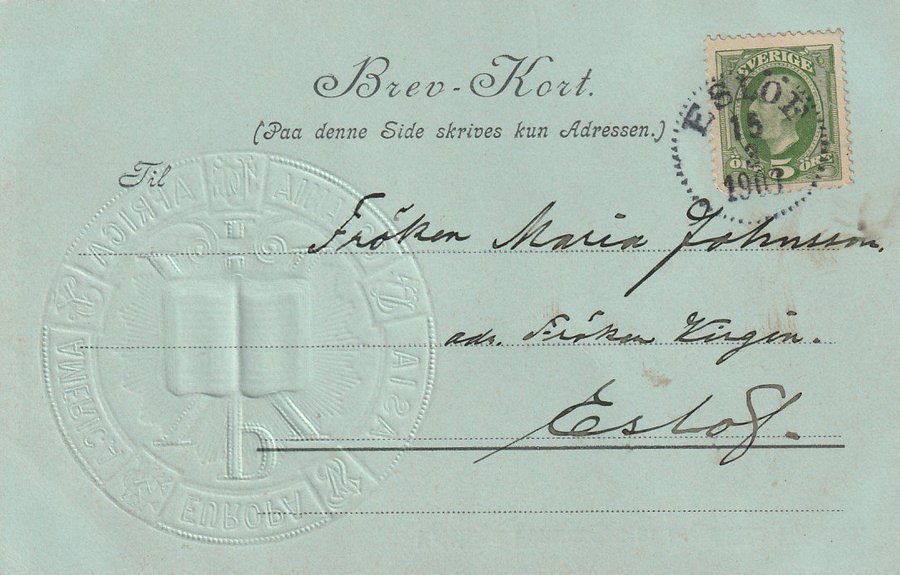 Brev-Kort.
(Paa denne Side skrives kun Adressen.)
SVERIGE
5
ÖRE
ESLÖF
15
1903
Til
Fröken Maria Johnsson,
adr. Fröken Virgin.
Eslöf.
AFRICA
ASIA
AMERICA
EUROPA